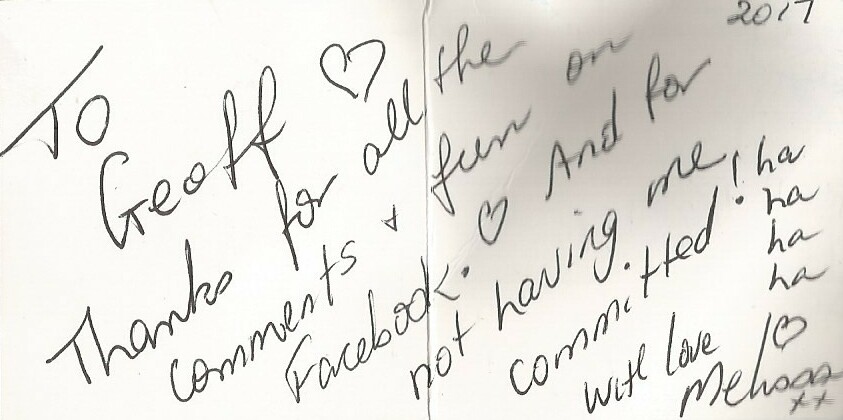 2017
To
Geoff ♡
Thanks for all the
comments + fun on
Facebook. ♡ And for
not having me
committed! ha
ha
ha
ha
with love
Melissa ♡
xx